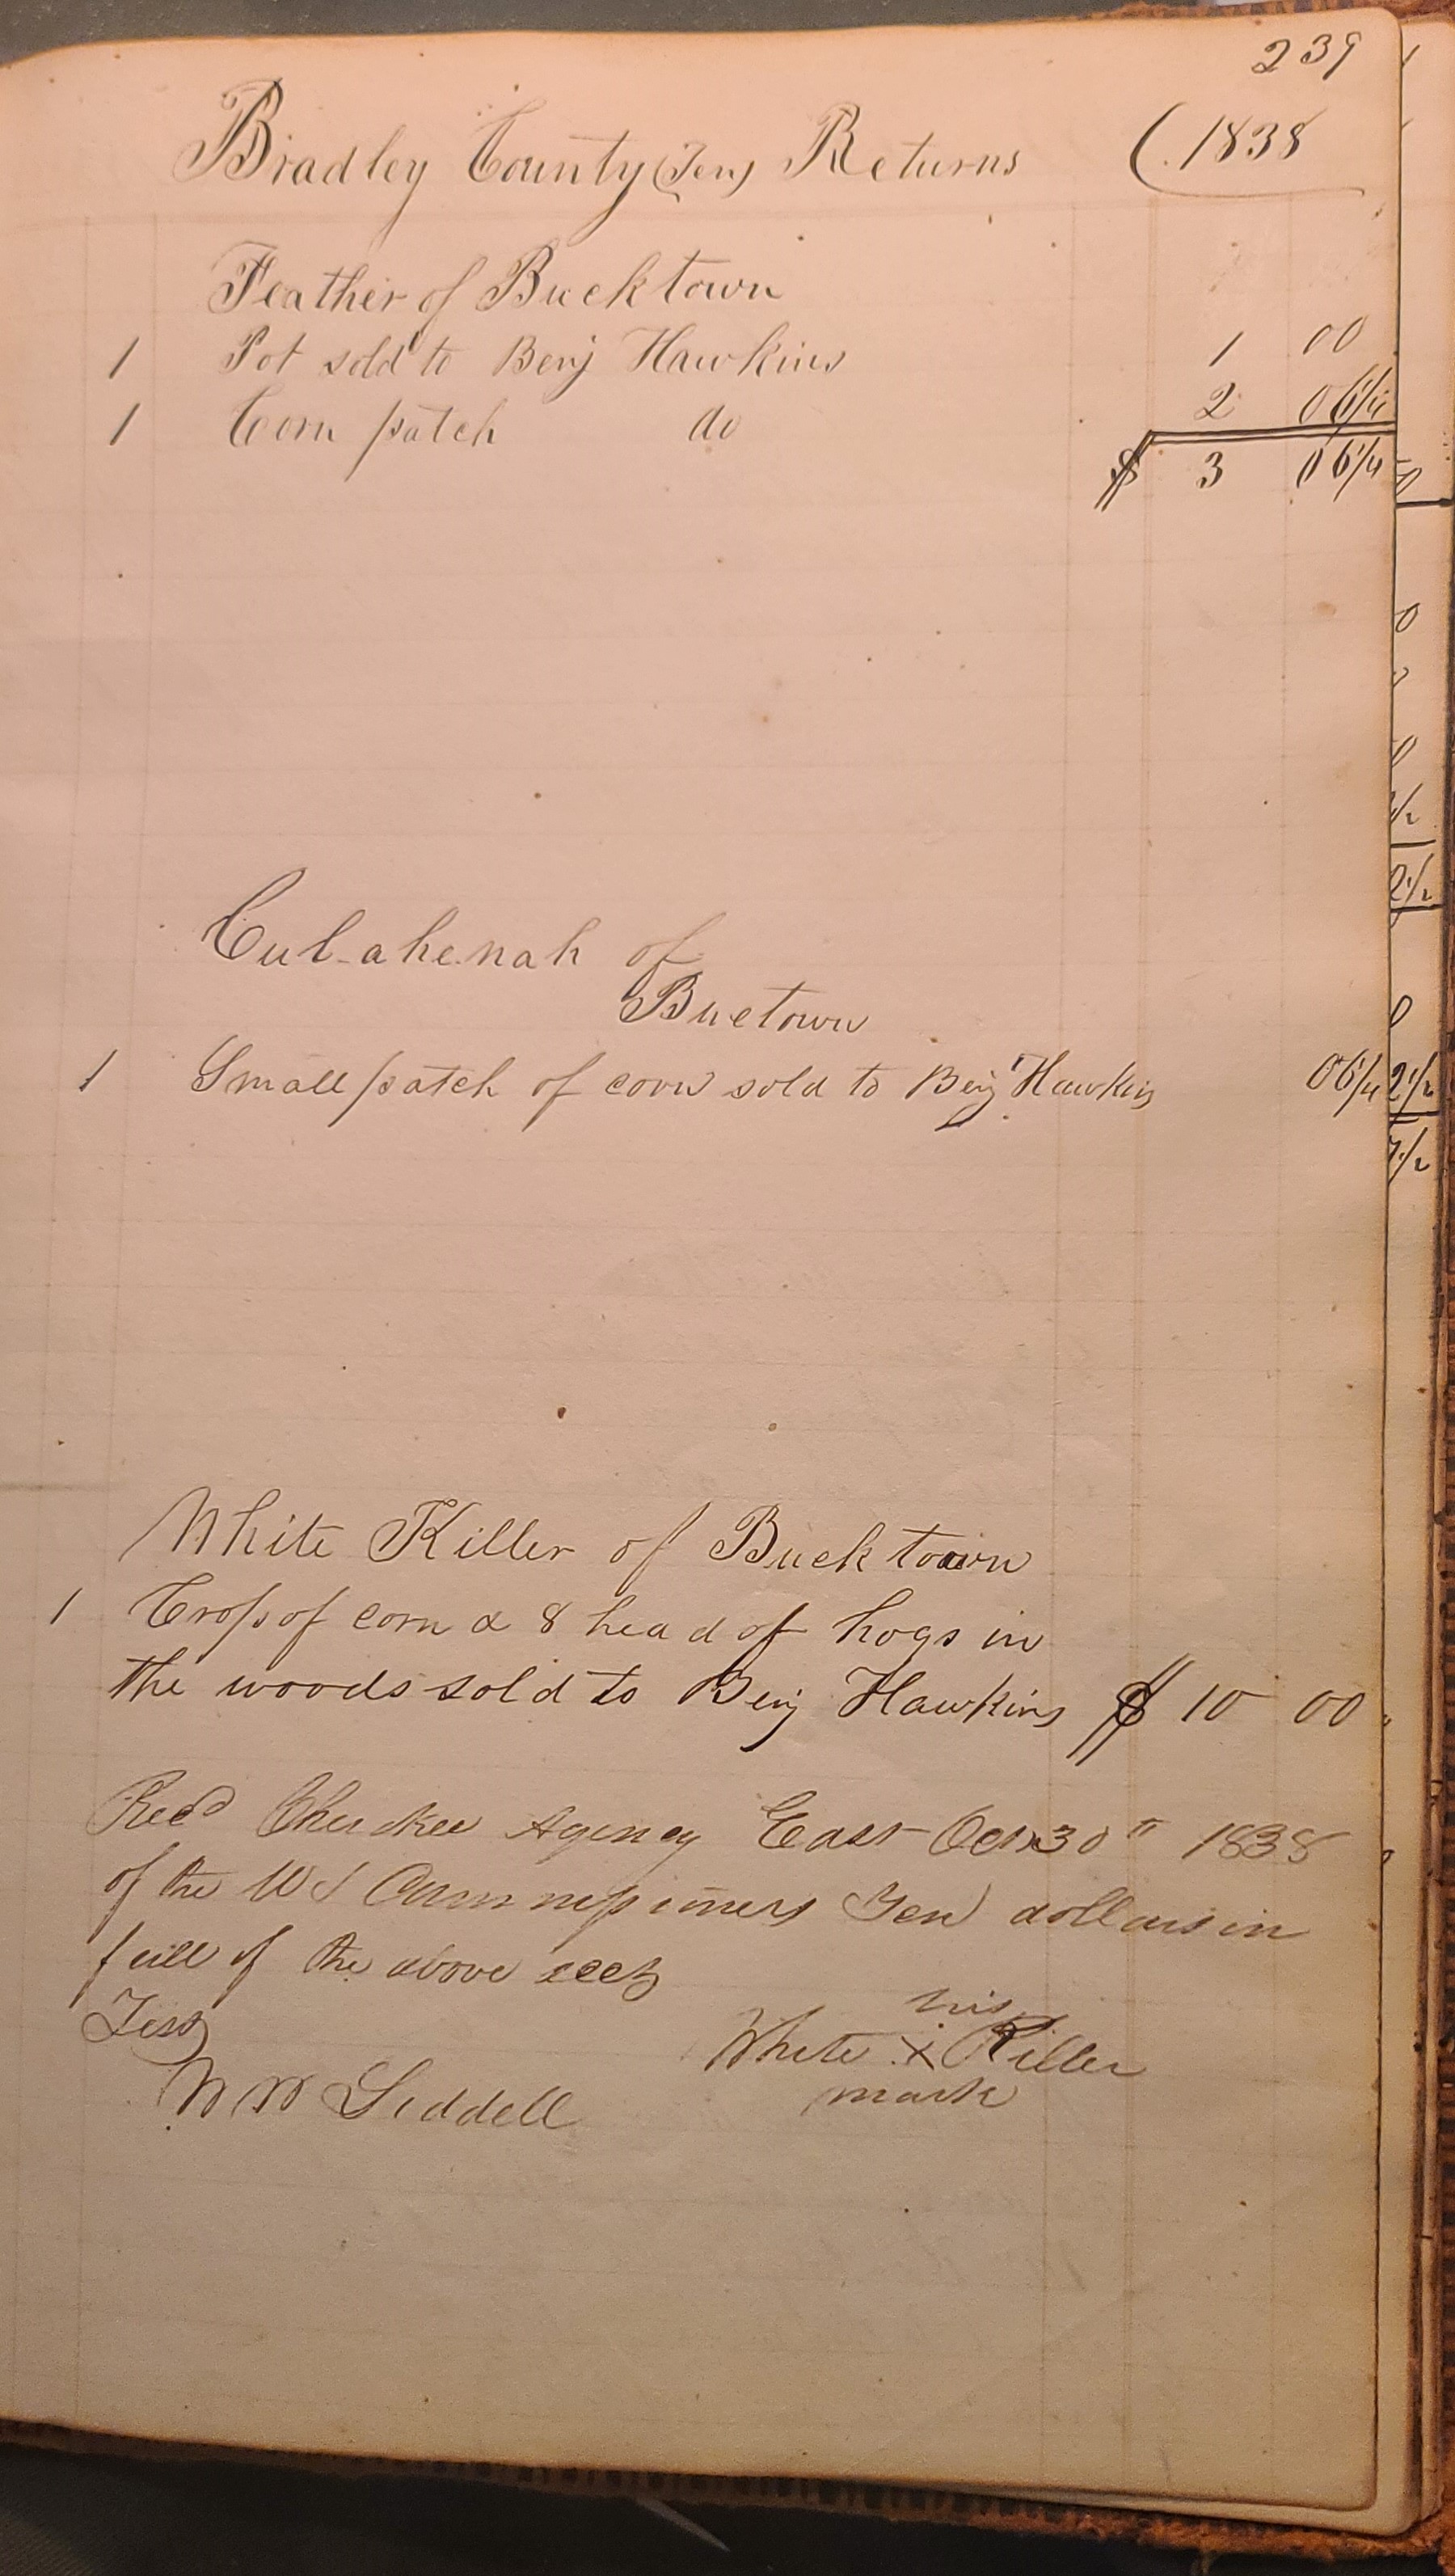 239
Bradley County (Ten) Returns (1838
Feather of Bucktown
1 Pot sold to Benj Hawkins 1 00
1 Corn patch do 2 06 1/4
$ 3 06 1/4
Cul-ahe-nah of
Buetown
1 Small patch of corn sold to Benj Hawkins 06 1/4
White Killer of Bucktown
1 Crop of corn & 8 head of hogs in
the woods sold to Benj Hawkins $ 10 00
Recd Cherokee Agency East Oct 30th 1838
of the US Commissioners Ten dollars in
full of the above
Test
his
White X Killer
mark
W W Liddell